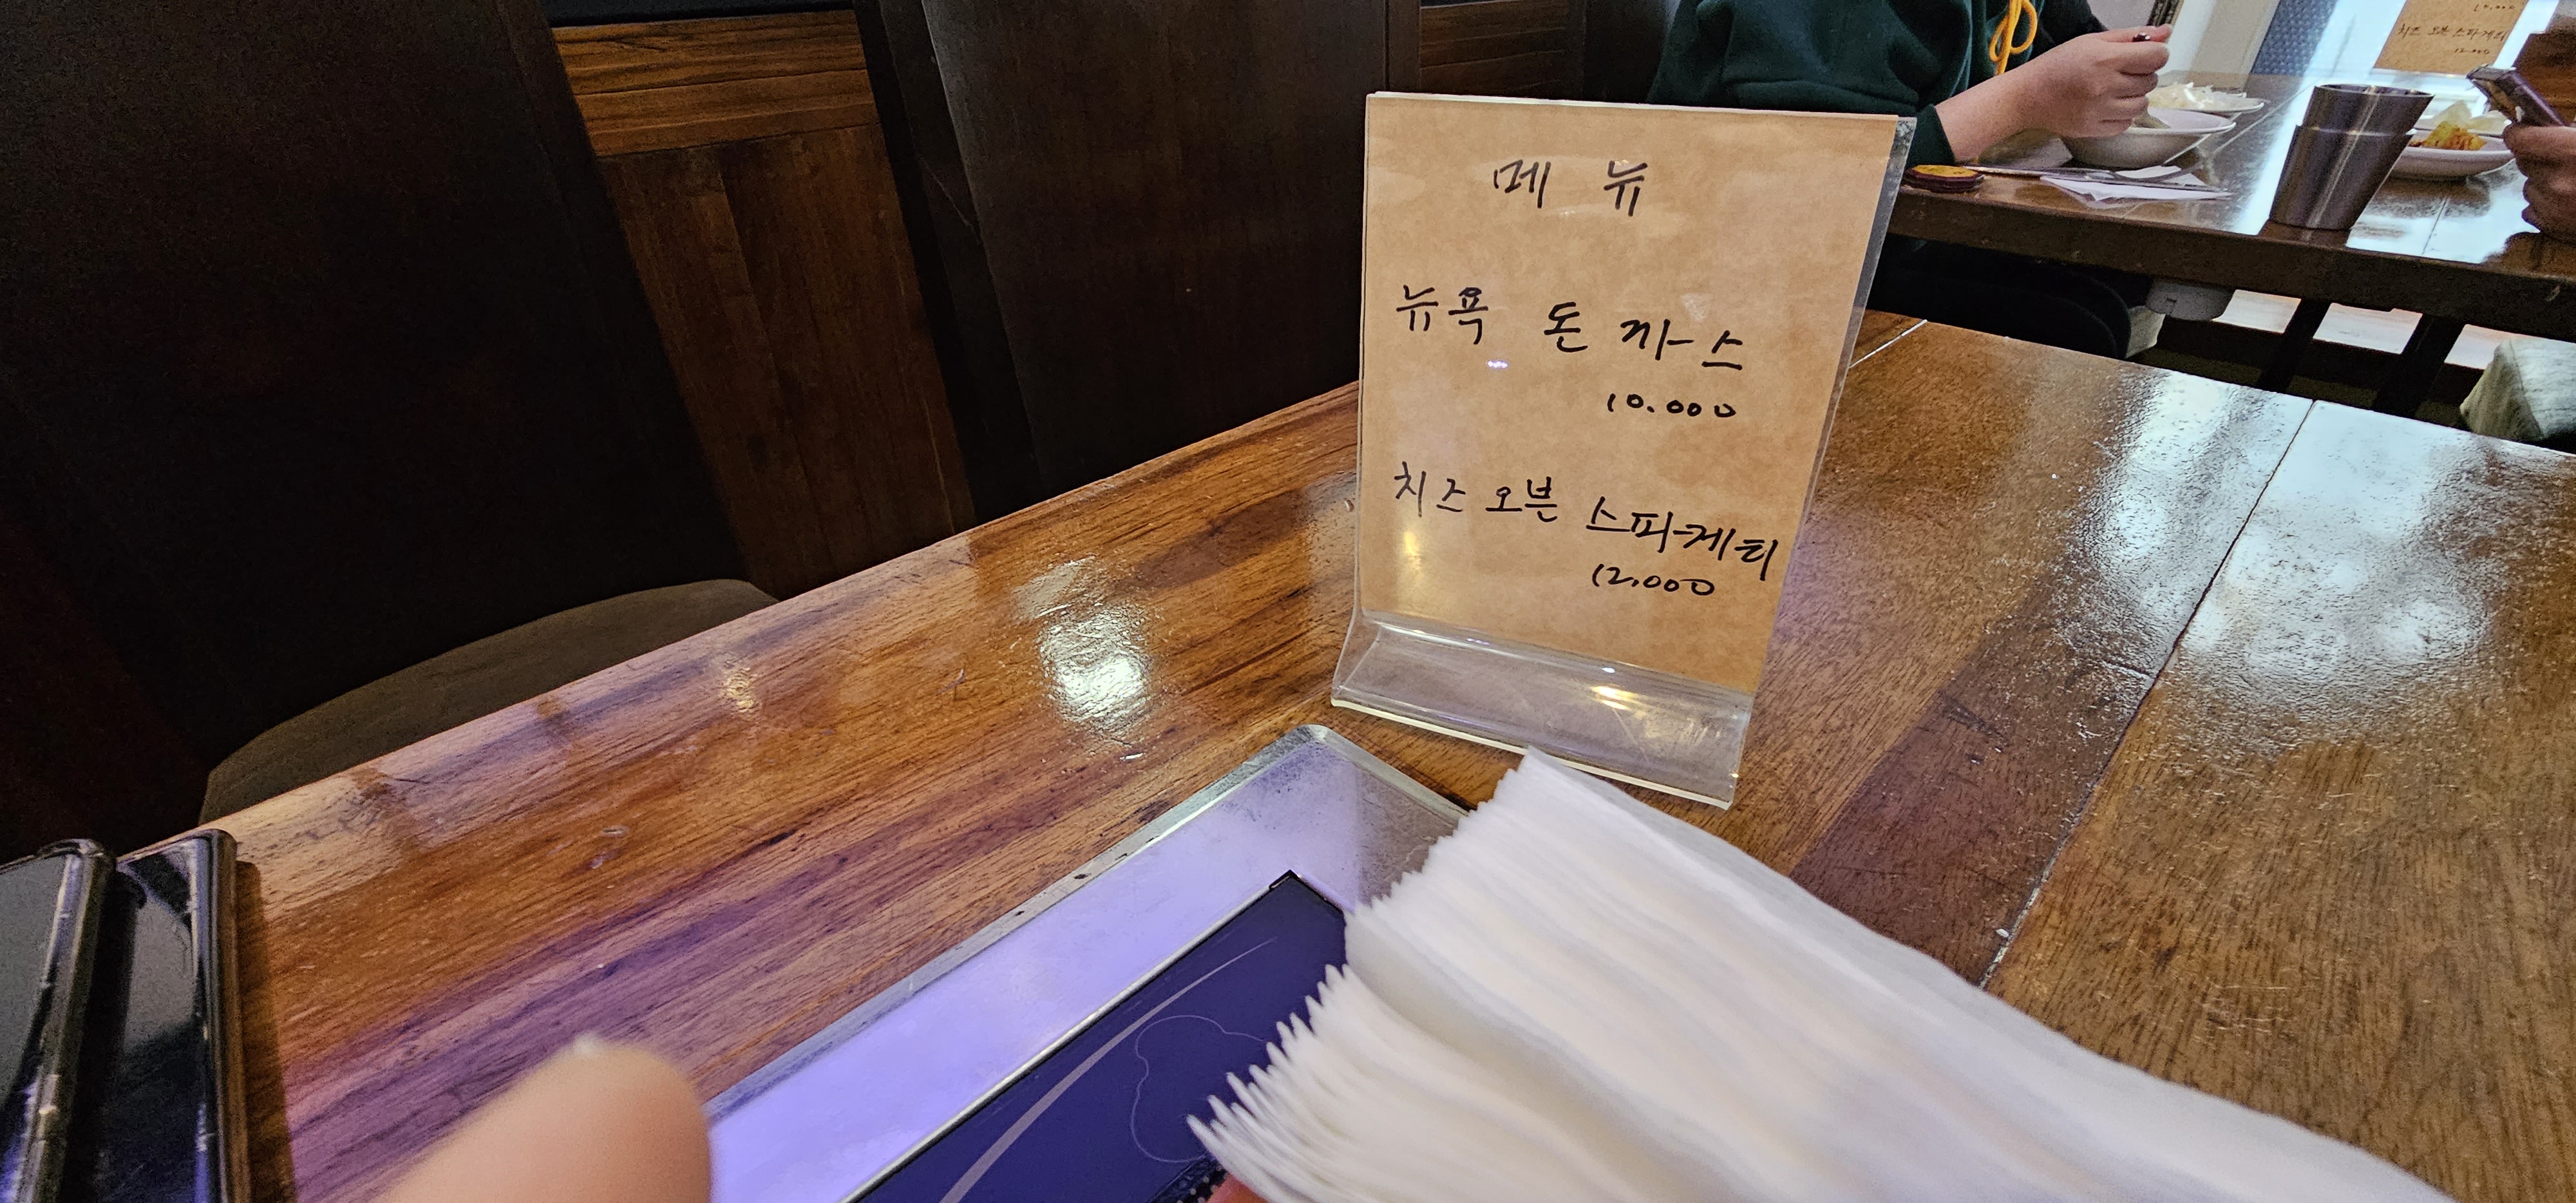 메 뉴
뉴욕 돈 까스
10.000
치즈 오븐 스파게티
12.000
치즈 오븐 스파게티
12.000